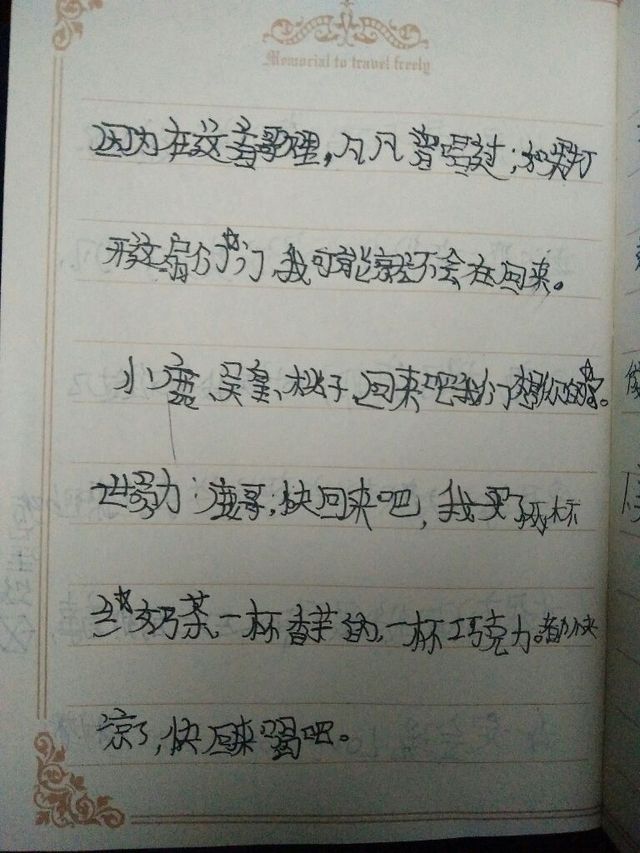 Memorial to travel freely
因为在这首歌里，凡凡曾唱过；如果打
开这扇门，我可能就不会在回来。
小鹿、吴皇、桃子，回来吧我们想你们了。
世勋：鹿哥；快回来吧，我买了两杯
奶茶，一杯香芋的，一杯巧克力。都快
凉了，快回来喝吧。